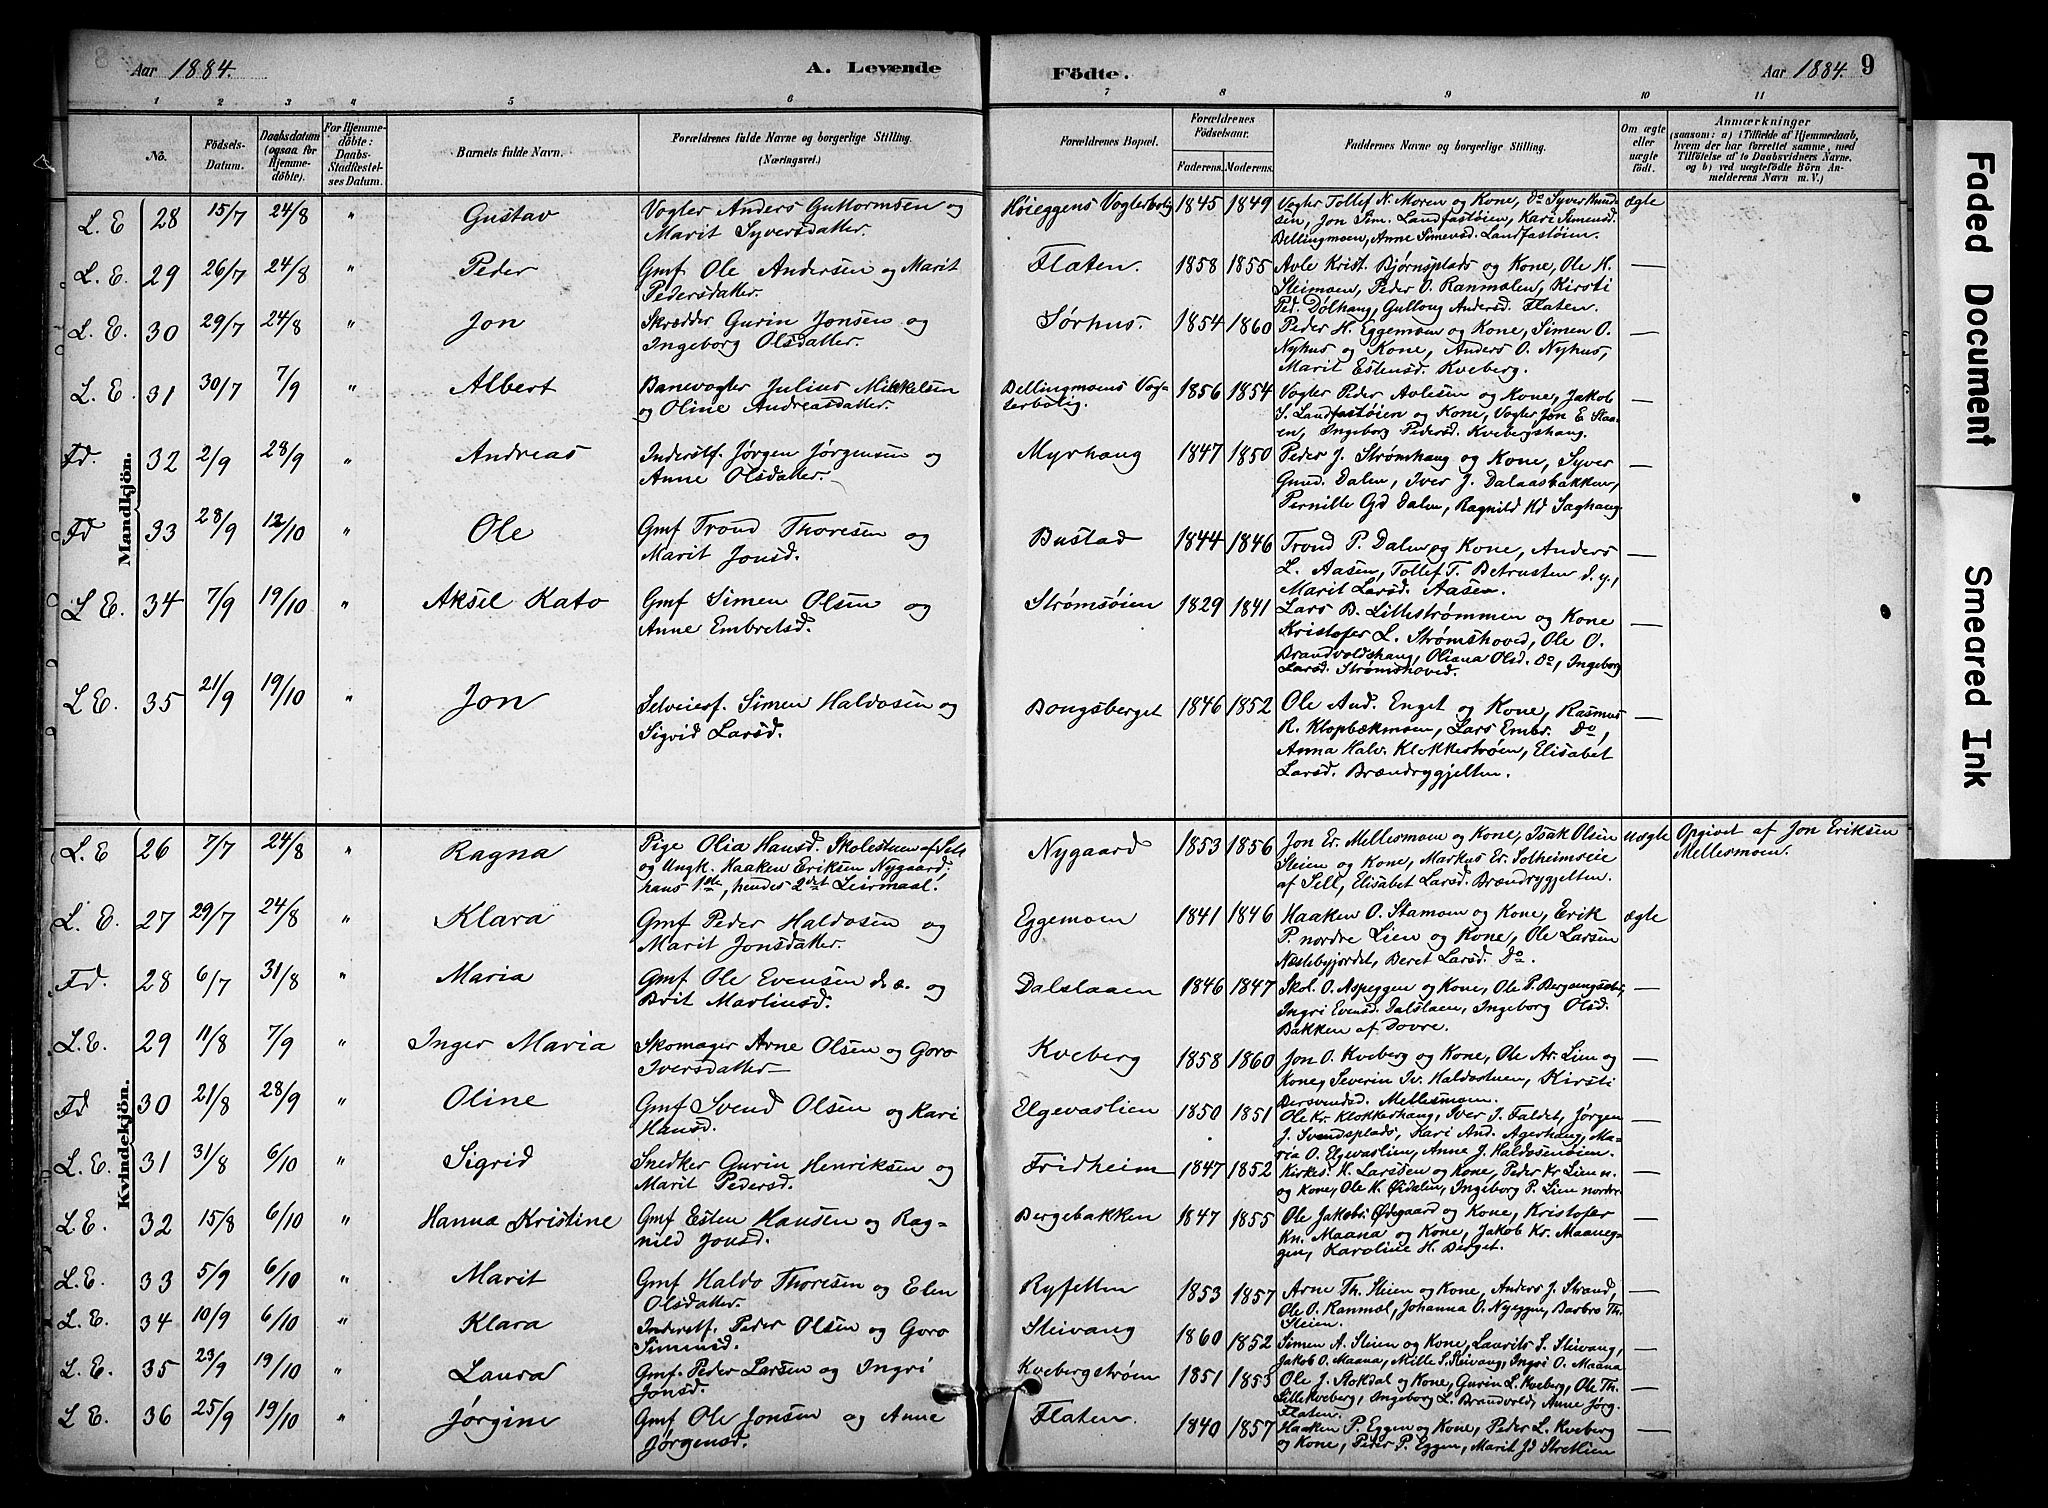 Aar 1884.
A. Levende
Födte.
Aar 1884. 9
1 2 3 4 5 6 7 8 9 10 11
No.
Födsels-
Datum.
Daabsdatum
(ogsaa for
Hjemme-
döbte).
For Hjemme-
döbte:
Daabs-
Stadfæstel-
ses Datum.
Barnets fulde Navn.
Forældrenes fulde Navne og borgerlige Stilling.
(Næringsvei.)
Forældrenes Bopæl.
Forældrenes
Födselsaar.
Faderens. Moderens.
Faddernes Navne og borgerlige Stilling.
Om ægte
eller
uægte
født.
Anmærkninger
(saasom: a) i Tilfælde af Hjemmedaab,
hvem der har forrettet samme, med
Tilföielse af to Daabsvidners Navne.
og b) ved uægtefödte Börn An-
melderens Navn m. V.)
Mandkjön.
L. E 28 15/7 24/8 " Gustav
Vogter Anders Guttormsen og
Marit Syversdatter.
Høieggens Vogterbolig 1845 1849
Vogter Tollef N. Moren og Kone, Do Syver Knud-
sen, Jon Sim. Landfastøien, Kari Simensd.
Bellingmoen, Anne Simensd. Landfastøien.
ægte
L. E. 29 26/7 24/8 " Peder
Gmf. Ole Andersen og Marit
Pedersdatter.
Flaten. 1858 1855
Avle Krist. Bjørnsplads og Kone, Ole H.
Steimoen, Peder O. Ranmælen, Kirsti
Ped. Dølhaug, Gullaug Andersd. Flaten.
—
L. E. 30 29/7 24/8 " Jon
Skrædder Gurin Jonsen og
Ingeborg Olsdatter.
Sørhus. 1854 1860
Peder H. Eggemoen og Kone, Simen O.
Nyhus og Kone, Anders O. Nyhus,
Marit Estensd. Kveberg.
—
L. E. 31 30/7 7/9 " Albert
Banevogter Julius Mikkelsen
og Oline Andreasdatter.
Bellingmoens Vog-
terbolig. 1856 1854
Vogter Peder Avlesen og Kone, Jakob
S. Landfastøien og Kone, Vogter Jon E. Staa-
en, Ingeborg Pedersd. Kveberghaug.
—
Fd. 32 2/9 28/9 " Andreas
Inderstf. Jørgen Jørgensen og
Anne Olsdatter.
Myrhaug 1847 1850
Peder J. Strømhaug og Kone, Syver
Gund. Dalen, Iver J. Dalaasbakken,
Pernille Gd Dalen, Ragnild Kd Saghaug
—
Fd 33 28/9 12/10 " Ole
Gmf Trond Thoresen og
Marit Jonsd.
Bustad 1844 1846
Trond P. Dalen og Kone, Anders
L. Aasen, Tollef T. Betrusten d. y.,
Marit Larsd. Aasen.
—
L E. 34 7/9 19/10 " Aksel Kato
Gmf Simen Olsen og
Anne Embretsd.
Strømsøien 1829 1841
Lars B. Lillestrømmen og Kone
Kristofer L. Strømshoved, Ole O.
Brandvoldshaug, Oliana Olsd. Do, Ingeborg
Larsd. Strømshoved.
—
L E. 35 21/9 19/10 " Jon
Selveierf. Simen Haldosen og
Sigrid Larsd.
Bongsberget 1846 1852
Ole And. Enget og Kone, Rasmus
R. Klopbækmoen, Lars Embr. Do,
Anna Halv. Klokkertrøen, Elisabet
Larsd. Brændryggjelten.
—
Kvindekjön.
L. E 26 7/7 24/8 " Ragna
Pige Olia Hansd. Skolestuen af Sell
og Ungk. Haaken Eriksen Nygaard;
hans 1ste, hendes 2det Leirmaal.
Nygaard 1853 1856
Jon Er. Mellesmoen og Kone, Isak Olsen
Steien og Kone, Markus Er. Solheimseie
af Sell, Elisabet Larsd. Brændryggjelten.
uægte
Opgivet af Jon Eriksen
Mellesmoen.
L. E. 27 29/7 24/8 " Klara
Gmf Peder Haldosen og
Marit Jonsdatter.
Eggemoen 1841 1846
Haaken O. Stamoen og Kone, Erik
P. nordre Lien og Kone, Ole Larsen
Næstebyjordet, Beret Larsd. Do.
ægte
Fd. 28 6/7 31/8 " Maria
Gmf. Ole Evensen d. æ. og
Brit Martinusd.
Dalslaaen 1846 1847
Skol. O. Aspeggen og Kone, Ole P.
Ingri Evensd. Dalslaen, Ingeborg Olsd.
Bakken af Dovre.
—
L. E. 29 11/8 7/9 " Inger Maria
Skomager Arne Olsen og Goro
Iversdatter
Kveberg 1858 1860
Jon O. Kveberg og Kone, Ole Ar. Lien og
Kone, Severin Iv. Haldostuen, Kirsti
Bersvendsd. Mellesmoen.
—
Fd 30 21/8 28/9 " Oline
Gmf Svend Olsen og Kari
Hansd.
Elgevaslien 1850 1851
Ole Kr. Klokkerhaug, Iver J. Faldet, Jørgen
J. Svendsplads, Kari And. Agerhaug, Ma-
ria O. Elgevaslien, Anne J. Haldosenøien.
—
L. E. 31 31/8 6/10 " Sigrid
Snedker Gurin Henriksen og
Marit Pedersd.
Fridheim 1847 1852
Kirkes. H. Larssen og Kone, Peder Kr. Lien n.
og Kone, Ole H. Øidalen, Ingeborg P. Lien nordre
—
L E. 32 15/8 6/10 " Hanna Kristine
Gmf Esten Hansen og Rag-
nild Jonsd.
Bergebakken 1847 1855
Ole Jakobs. Ødegaard og Kone, Kristofer
Kn. Maana og Kone, Jakob Kr. Maaneg-
gen, Karoline H. Berget.
—
L E. 33 5/9 6/10 " Marit
Gmf Haldo Thoresen og Elen
Olsdatter.
Ryfetten 1853 1857
Arne Th. Steien og Kone, Anders J. Strand,
Ole O. Ranmæl, Johanna O. Nyeggen, Barbro Th.
Steien.
—
L. E. 34 10/9 6/10 " Klara
Inderstf. Peder Olsen og Goro
Simensd.
Steivang 1860 1852
Simen A. Steien og Kone, Laurits S. Steivang,
Jakob O. Maana, Mille S. Steivang, Ingri O. Maana
—
L. E. 35 23/9 19/10 " Laura
Gmf. Peder Larsen og Ingri
Jonsd.
Kvebergtrøen 1851 1853
Ole J. Stokdal og Kone, Gurin L. Kveberg, Ole Th.
Lillekveberg, Ingeborg L. Brandvold, Anne Jørg.
Flaten.
—
L E. 36 25/9 19/10 " Jørgine
Gmf Ole Jonsen og Anne
Jørgensd.
Flaten. 1840 1857
Haaken P. Eggen og Kone, Peder L. Kveberg
og Kone, Peder P. Eggen, Marit Jd Stretlien
Faded Document
Smeared Ink